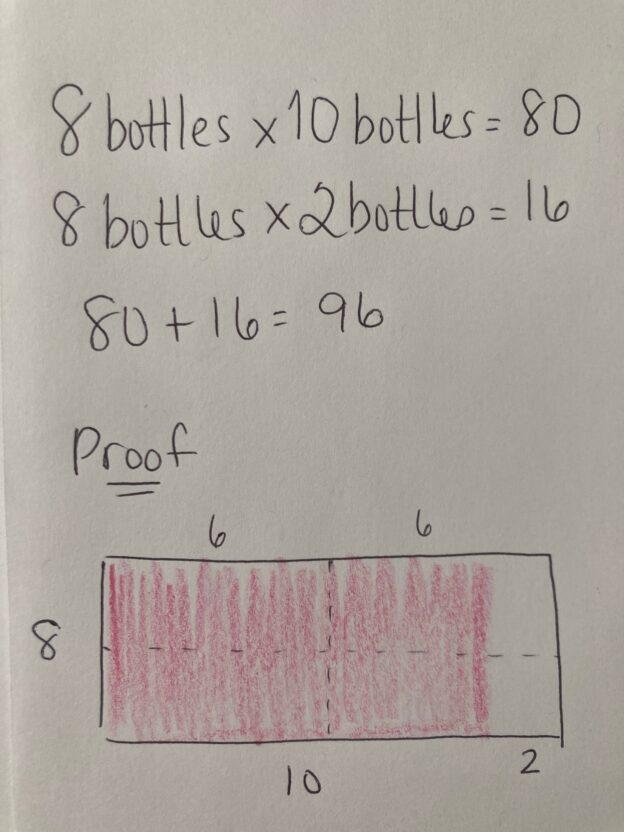 8 bottles x 10 bottles = 80
8 bottles x 2 bottles = 16
80 + 16 = 96
Proof
6 6
8
10 2